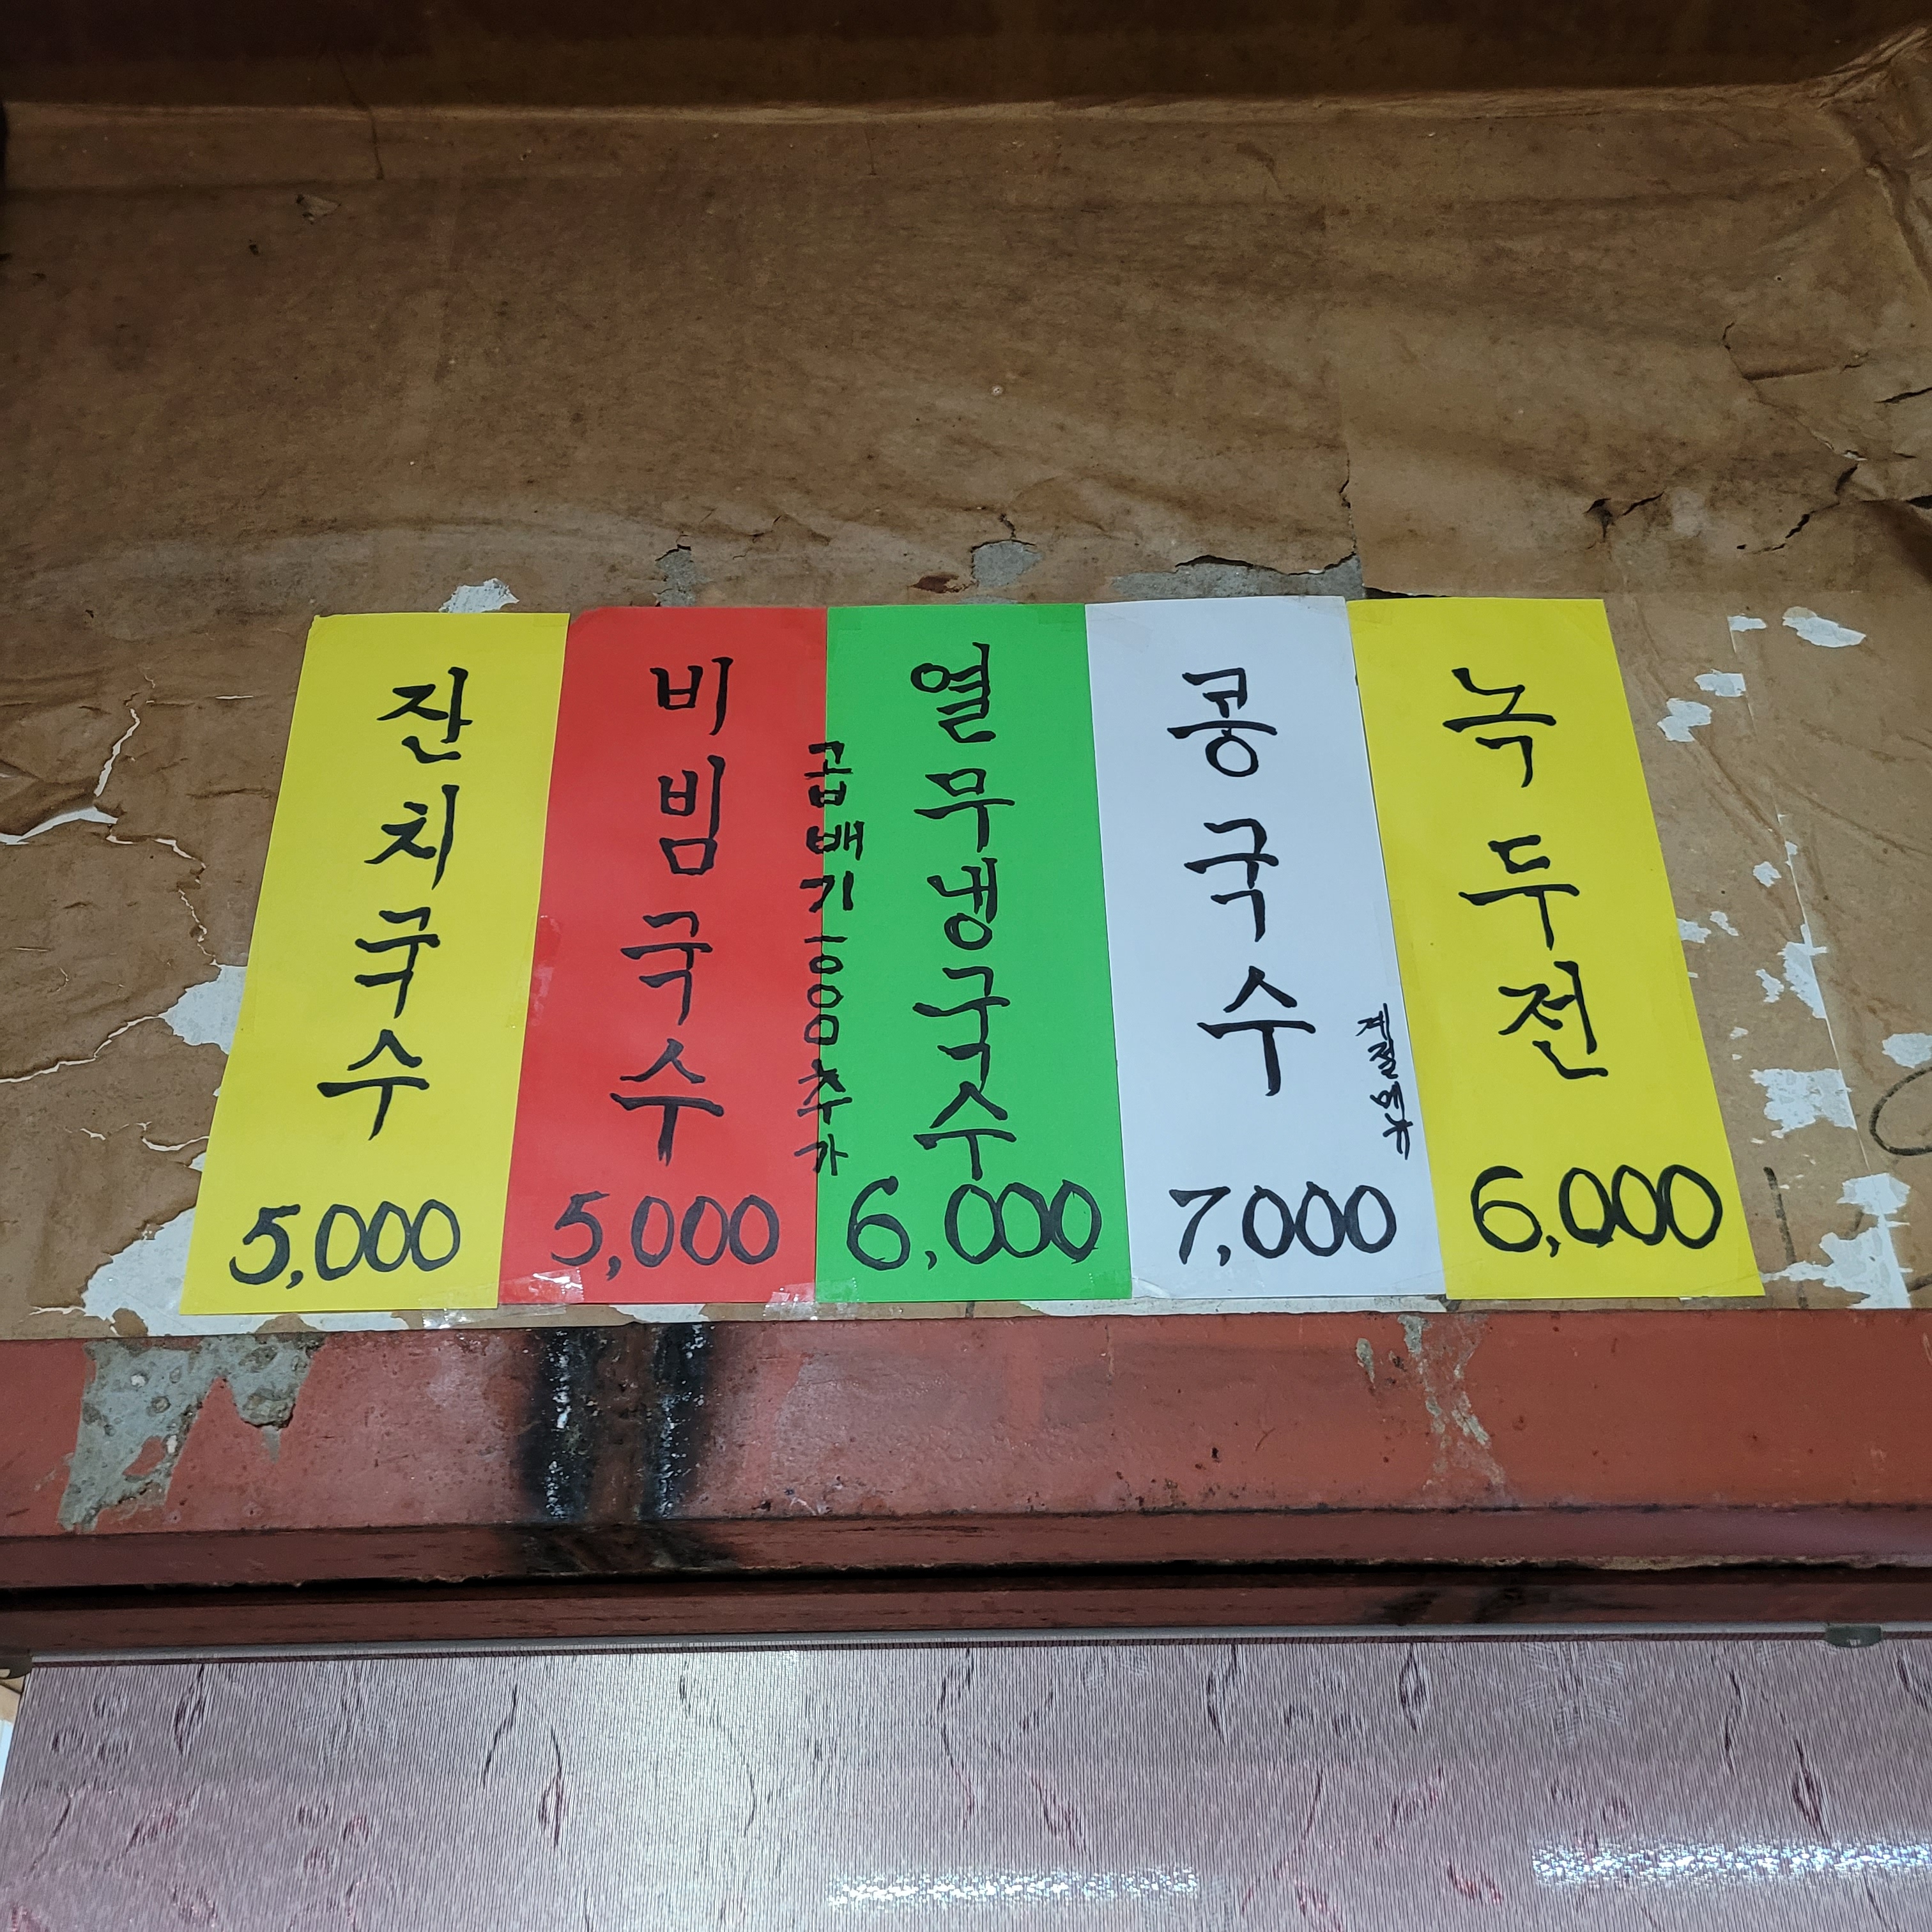 잔치국수
5,000
비빔국수
5,000
곱배기 1000추가
열무냉국수
6,000
콩국수
계절메뉴
7,000
녹두전
6,000